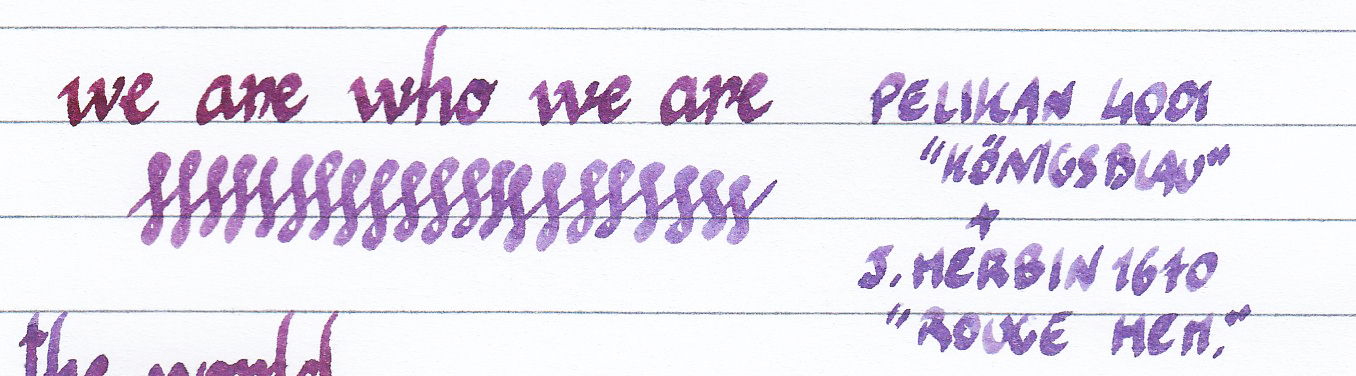 we are who we are
PELIKAN 4001
"KÖNIGSBLAU"
+
J. HERBIN 1670
"ROUGE HEM."
the world